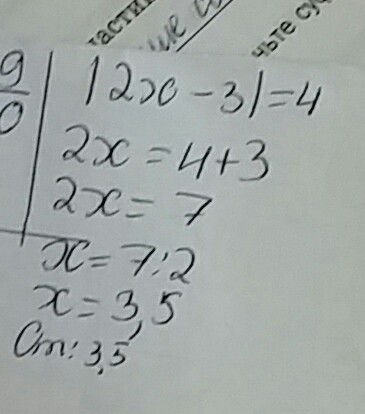 частии
ие
чьте су
9
0
|2x - 3| = 4
2x = 4 + 3
2x = 7
x = 7 : 2
x = 3,5
От: 3,5